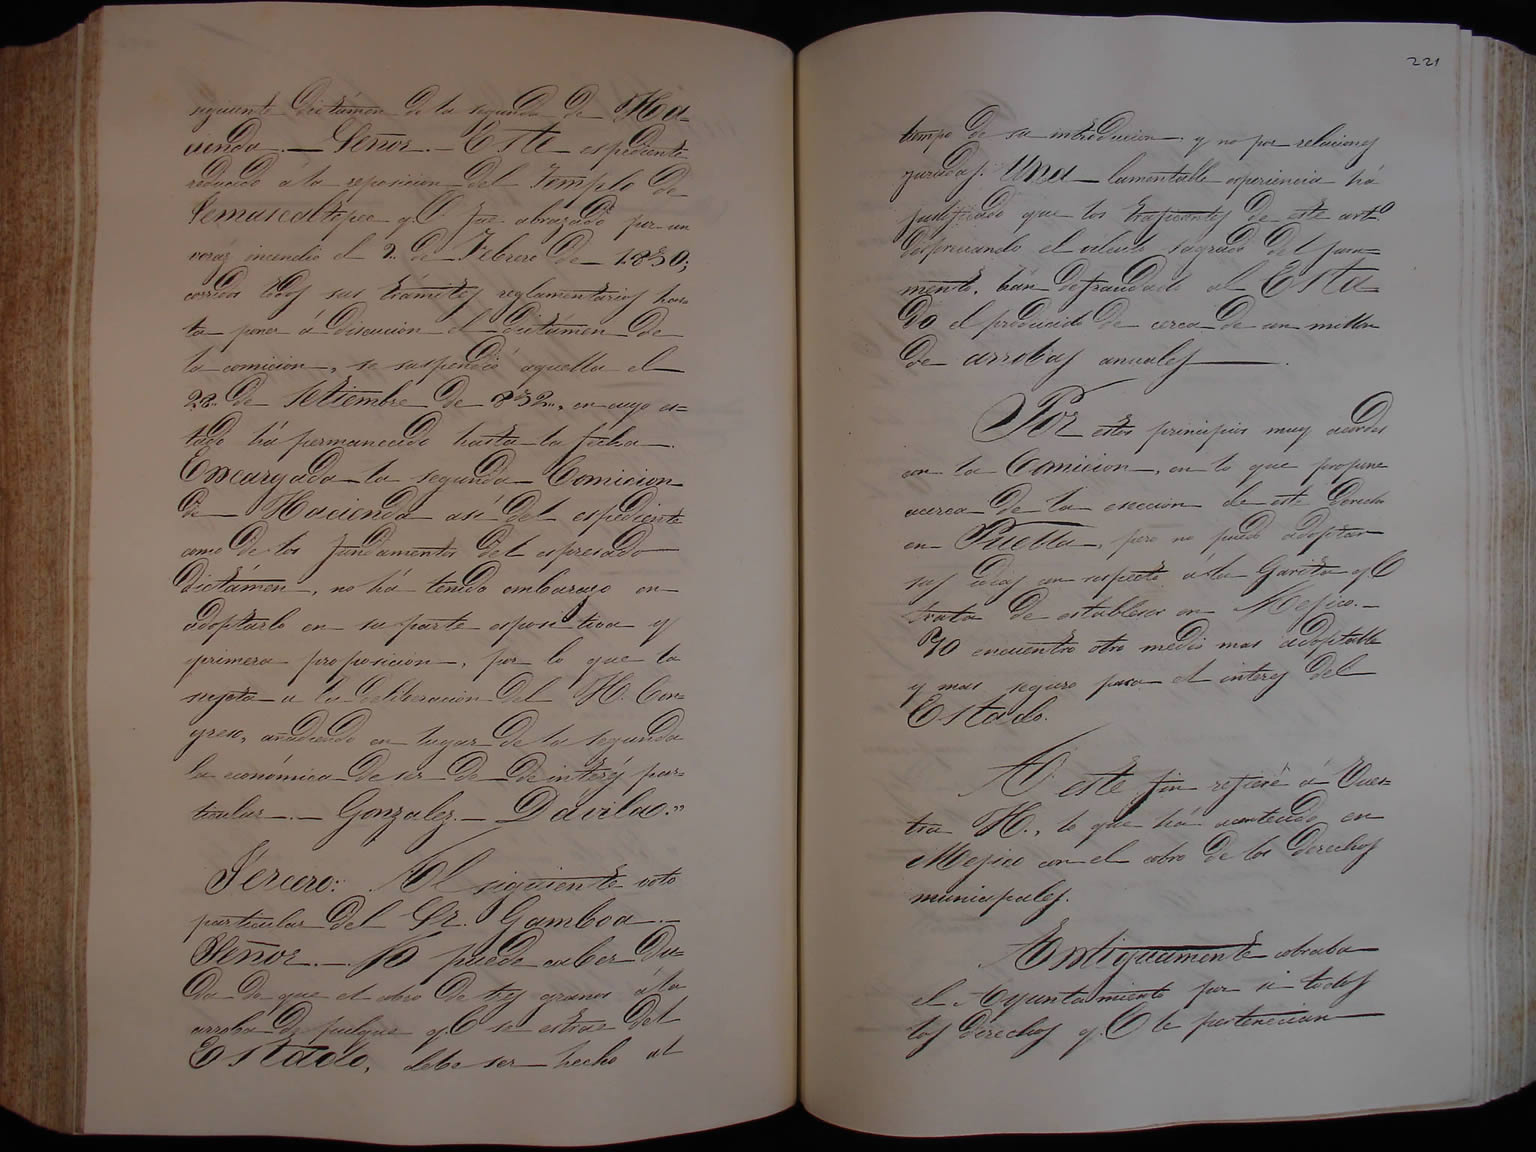 siguiente dictámen de la segunda de Ha-
cienda.—Señor.—Este espediente
reducido á la reposicion del Templo de
Temascaltepec q.e fue abrazado por un
voráz incendio el 2. de Febrero de 1830;
corrió todos sus trámites reglamentarios has-
ta poner á discucion el dictámen de
la comicion, se suspendió aquella el
28. de Setiembre de 832., en cuyo es-
tado há permanecido hasta la fecha.
Encargada la segunda Comicion
de Hacienda así del espediente
como de los fundamentos del espresado
Dictámen, no há tenido embarazo en
adoptarlo en su parte espositiva y
primera proposicion, por lo que la
sugeta a la deliberacion del H. Con-
greso, añadiendo en lugar de la segunda
la económica de ser de de interés par-
ticular.—Gonzalez.—Davila."
Tercero: Al siguiente voto
particular del Sr. Gamboa.—
Señor.—No puede caber du-
da de que el cobro de tres granos á la
arroba de pulque q.e se estrae del
Estado, debe ser hecho al
221
tiempo de su introducion y no por relaciones
juradas. Una lamentable esperiencia há
justificado que los traficantes de este art.o
despreciando el vínculo sagrado del jura-
mento, hán defraudado al Esta-
do el producido de cerca de un millon
de arrobas anuales.
Por estos principios muy acordes
con la Comicion, en lo que propone
acerca de la esaccion de este derecho
en Puebla, pero no puedo adoptar
sus ideas con respecto á la Garita q.e
trata de establecer en Mejico.—
Yo encuentro otro medio mas adoptable
y mas seguro para el interes del
Estado.
A este fin referiré á Vues-
tra H., lo que há acontecido en
Mejico con el cobro de los derechos
municipales.
Antiguamente cobraba
el Ayuntamiento por si todos
los derechos q.e le pertenecian